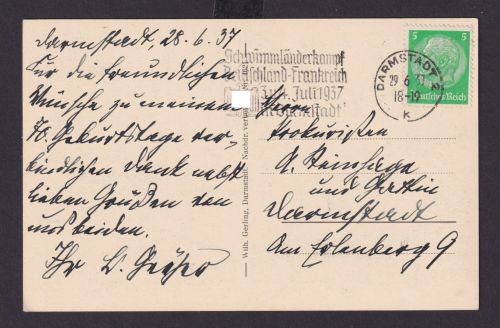 Darmstadt, 28.6.37
Für die freundlichen
Wünsche zu meinem
70. Geburtstage ver-
bindlichen Dank nebst
lieben Grüßen von
uns beiden.
Ihr
Schwimmländerkampf
Deutschland-Frankreich
3. u. 4. Juli 1937
in Darmstadt
DARMSTADT 2
29.6.37
18-19
k
5 5
Deutsches Reich
Herrn
Prokuristen
und Gattin
Darmstadt
Am Erlenberg 9
Wilh. Gerling, Darmstadt. Nachdr. verboten